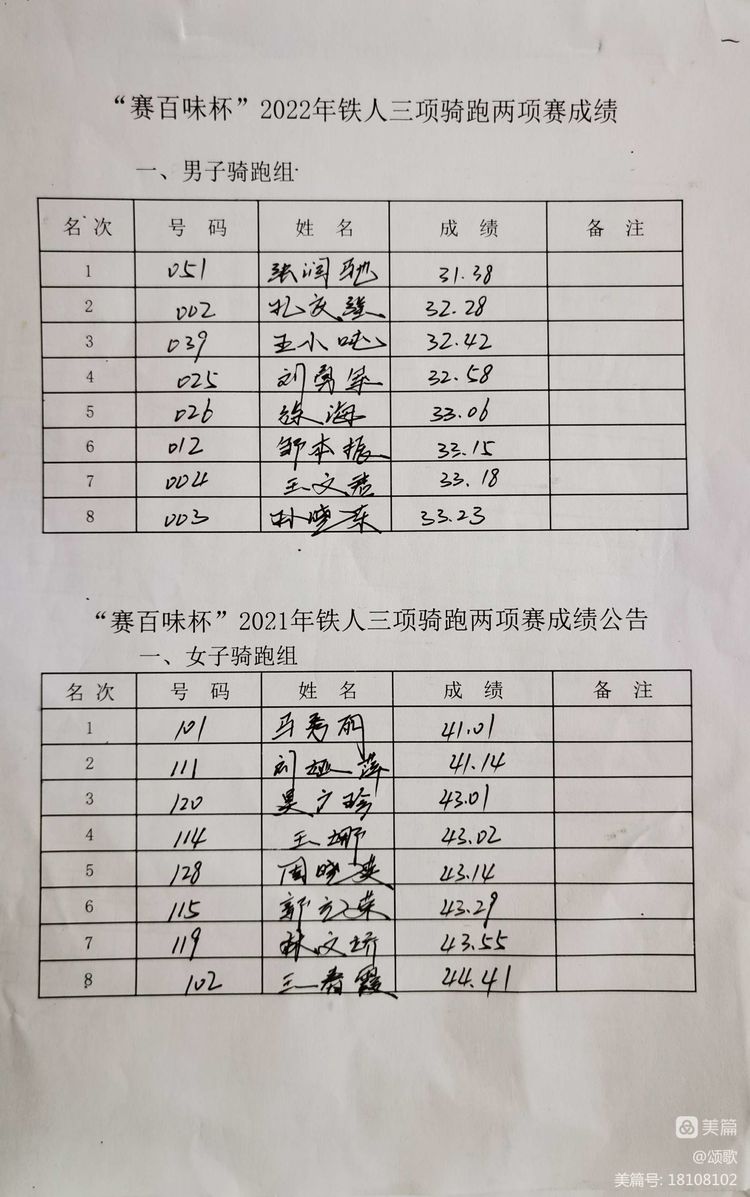 “赛百味杯”2022年铁人三项骑跑两项赛成绩
一、男子骑跑组
名次 号码 姓名 成绩 备注
1 051 张润驰 31.38
2 002 扎西强 32.28
3 039 王小吨 32.42
4 025 刘勇军 32.58
5 026 徐海 33.06
6 012 邹本振 33.15
7 004 王文君 33.18
8 003 孙晓东 33.23
“赛百味杯”2021年铁人三项骑跑两项赛成绩公告
一、女子骑跑组
名次 号码 姓名 成绩 备注
1 101 马秀丽 41.01
2 111 刘亚萍 41.14
3 120 吴广珍 43.01
4 114 王娜 43.02
5 128 周晓英 43.14
6 115 郭立荣 43.29
7 119 林文娇 43.55
8 102 王春霞 44.41
美篇
@颂歌
美篇号: 18108102